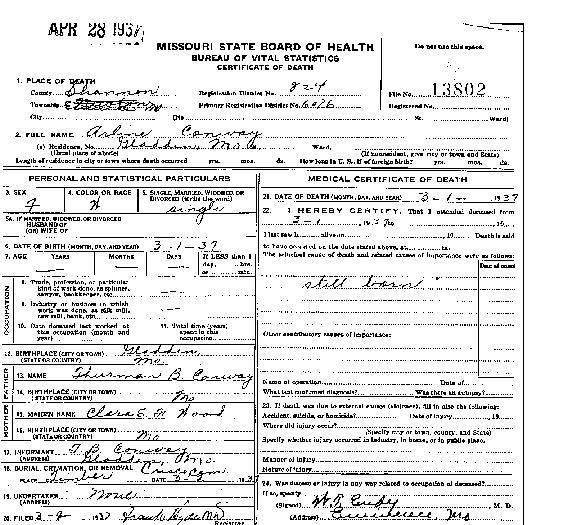 APR 28 1937
MISSOURI STATE BOARD OF HEALTH
BUREAU OF VITAL STATISTICS
CERTIFICATE OF DEATH
Do not use this space.
1. PLACE OF DEATH
County Shannon Registration District No. 824 File No. 13802
Township Primary Registration District No. 6096 Registered No.
City (No. St. Ward)
2. FULL NAME Arline Conway
(a) Residence, No. Gladden, Mo St. Ward.
(Usual place of abode) (If nonresident, give city or town and State)
Length of residence in city or town where death occurred yrs. mos. ds. How long in U. S., if of foreign birth? yrs. mos. ds.
PERSONAL AND STATISTICAL PARTICULARS
3. SEX 4. COLOR OR RACE 5. SINGLE, MARRIED, WIDOWED, OR DIVORCED (write the word)
F W single
5A. IF MARRIED, WIDOWED, OR DIVORCED
HUSBAND OF
(OR) WIFE OF
6. DATE OF BIRTH (MONTH, DAY, AND YEAR) 3-1-37
7. AGE YEARS MONTHS DAYS If LESS than 1
day, hrs.
or min.
OCCUPATION
8. Trade, profession, or particular
kind of work done, as spinner,
sawyer, bookkeeper, etc.
9. Industry or business in which
work was done, as silk mill,
saw mill, bank, etc.
10. Date deceased last worked at
this occupation (month and
year)
11. Total time (years)
spent in this
occupation
12. BIRTHPLACE (CITY OR TOWN) Gladden
(STATE OR COUNTRY) Mo
FATHER
13. NAME Thurman B. Conway
14. BIRTHPLACE (CITY OR TOWN)
(STATE OR COUNTRY) Mo
MOTHER
15. MAIDEN NAME Clara E. Wood
16. BIRTHPLACE (CITY OR TOWN)
(STATE OR COUNTRY) Mo
17. INFORMANT T B Conway
(ADDRESS) Gladden, Mo.
18. BURIAL, CREMATION, OR REMOVAL
PLACE DATE 1937
19. UNDERTAKER None
(ADDRESS)
20. FILED 3-2 1937 Registrar
MEDICAL CERTIFICATE OF DEATH
21. DATE OF DEATH (MONTH, DAY, AND YEAR) 3-1- 1937
22. I HEREBY CERTIFY, That I attended deceased from
3-1 19
I last saw h alive on 19 Death is said
to have occurred on the date stated above, at m.
The principal cause of death and related causes of importance were as follows:
Date of onset
still born
Other contributory causes of importance:
Name of operation Date of
What test confirmed diagnosis? Was there an autopsy?
23. If death was due to external causes (violence), fill in also the following:
Accident, suicide, or homicide? Date of injury 19
Where did injury occur?
(Specify city or town, county, and State)
Specify whether injury occurred in industry, in home, or in public place.
Manner of injury
Nature of injury
24. Was disease or injury in any way related to occupation of deceased?
If so, specify
(Signed) M. D.
(Address) Mo